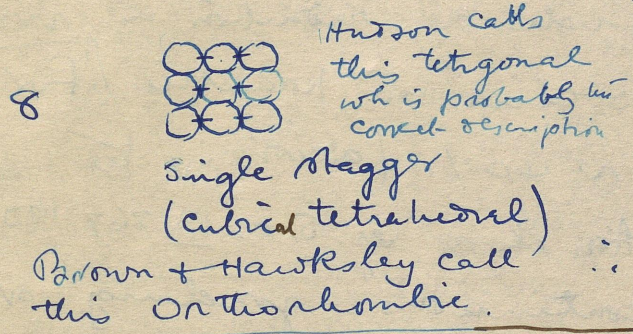 Hudson calls
this tetragonal
wh is probably
correct description
8
single stagger
(cubical tetrahedral)
Brown & Hawksley call ∴
this Orthorhombic.